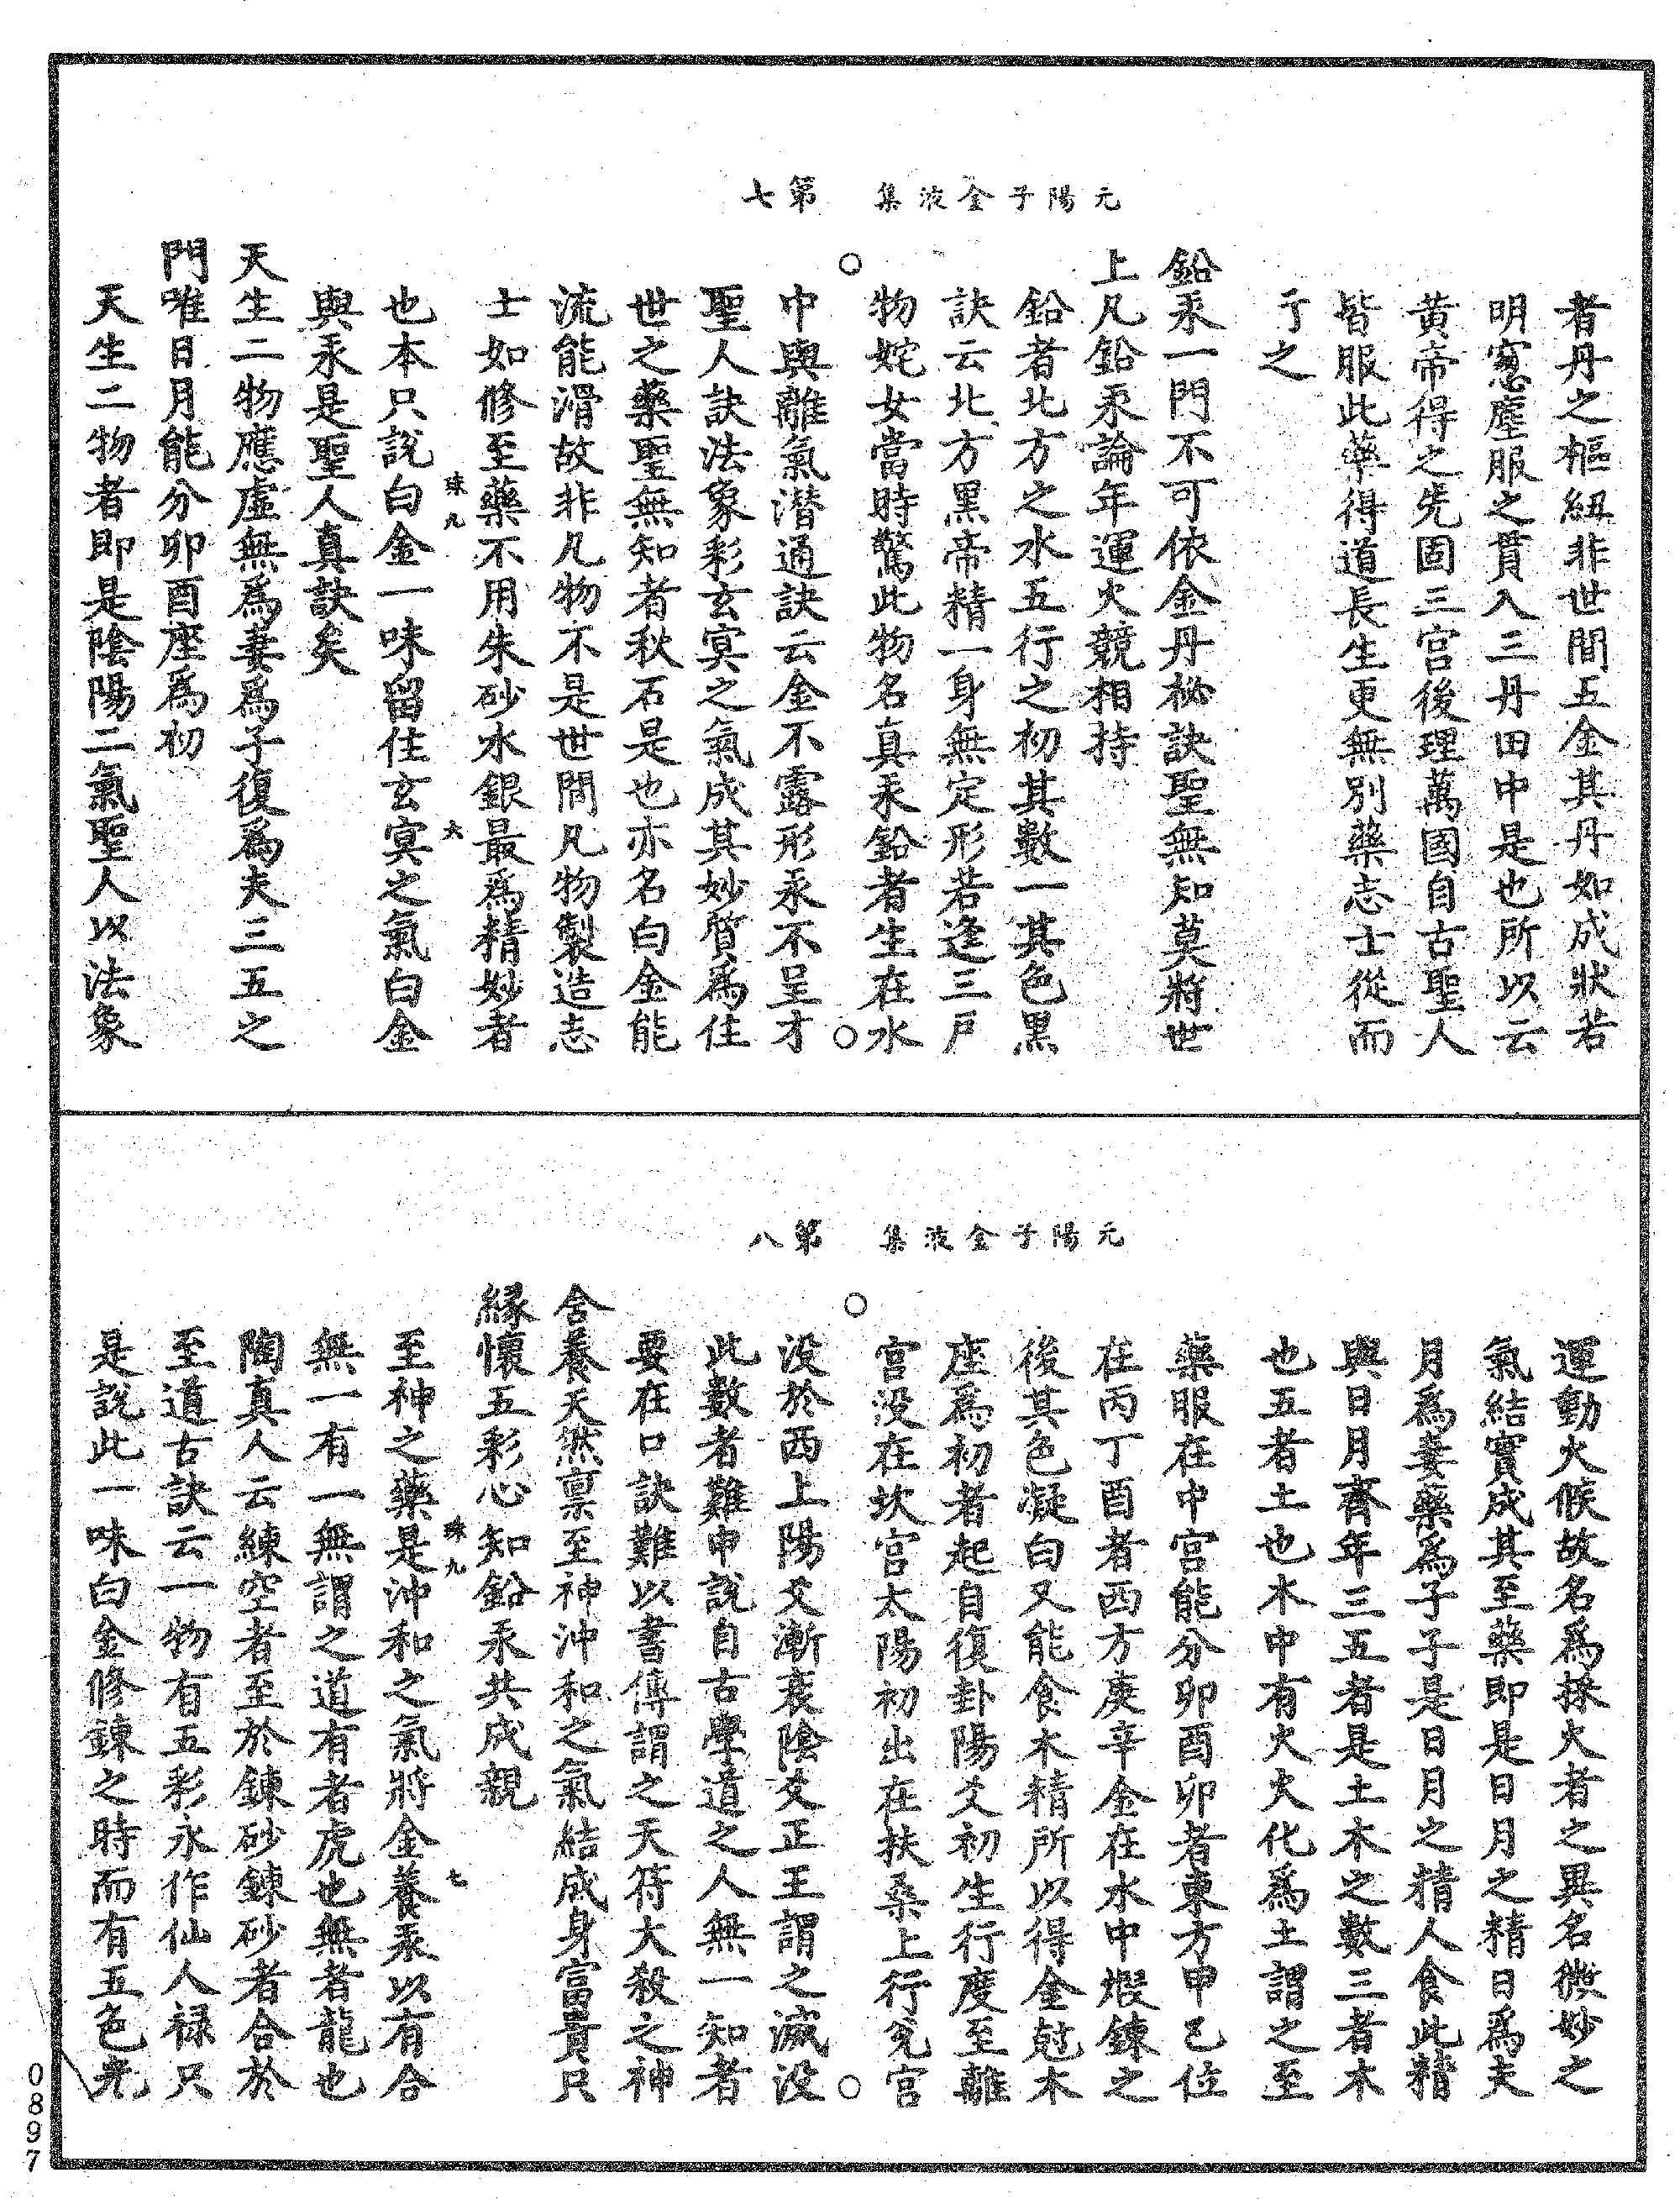 元陽子金液集　第七
者丹之樞紐非世間五金其丹如成狀若
明窻塵服之貫入三丹田中是也所以云
黃帝得之先固三宫後理萬國自古聖人
皆服此藥得道長生更無別藥志士從而
行之
鉛汞一門不可依金丹祕訣聖無知莫將世
上凡鉛汞論年運火競相持
鉛者北方之水五行之初其數一其色黑
訣云北方黑帝精一身無定形若逢三戸
物姹女當時驚此物名真汞鉛者生在水
中與離氣潛通訣云金不露形汞不呈才
聖人訣法象彩玄㝠之氣成其妙質爲住
世之藥聖無知者秋石是也亦名白金能
流能滑故非凡物不是世間凡物製造志
士如修至藥不用朱砂水銀最爲精妙者
珠九　六
也本只說白金一味留住玄㝠之氣白金
與汞是聖人真訣矣
天生二物應虛無爲妻爲子復爲夫三五之
門唯日月能分卯酉座爲初
天生二物者即是陰陽二氣聖人以法象
元陽子金液集　第八
運動火候故名爲採火者之異名微妙之
氣結實成其至藥即是日月之精日爲夫
月爲妻藥爲子子是日月之精人食此精
與日月齊年三五者是土木之數三者木
也五者土也木中有火火化爲土謂之至
藥服在中宫能分卯酉卯者東方甲乙位
在丙丁酉者西方庚辛金在水中煅鍊之
後其色凝白又能食木精所以得金尅木
座爲初者起自復卦陽爻初生行度至離
宫没在坎宫太陽初出在扶桑上行兊宫
没於西上陽爻漸衰陰爻正王謂之滅没
此數者難申說自古學道之人無一知者
要在口訣難以書傳謂之天符大殺之神
舍養天然禀至神沖和之氣結成身富貴只
縁懷五彩心知鉛汞共成親
珠九　七
至神之藥是沖和之氣將金養汞以有合
無一有一無謂之道有者虎也無者龍也
陶真人云練空者至於鍊砂鍊砂者合於
至道古訣云一物有五彩永作仙人禄只
是說此一味白金修鍊之時而有五色光
0897